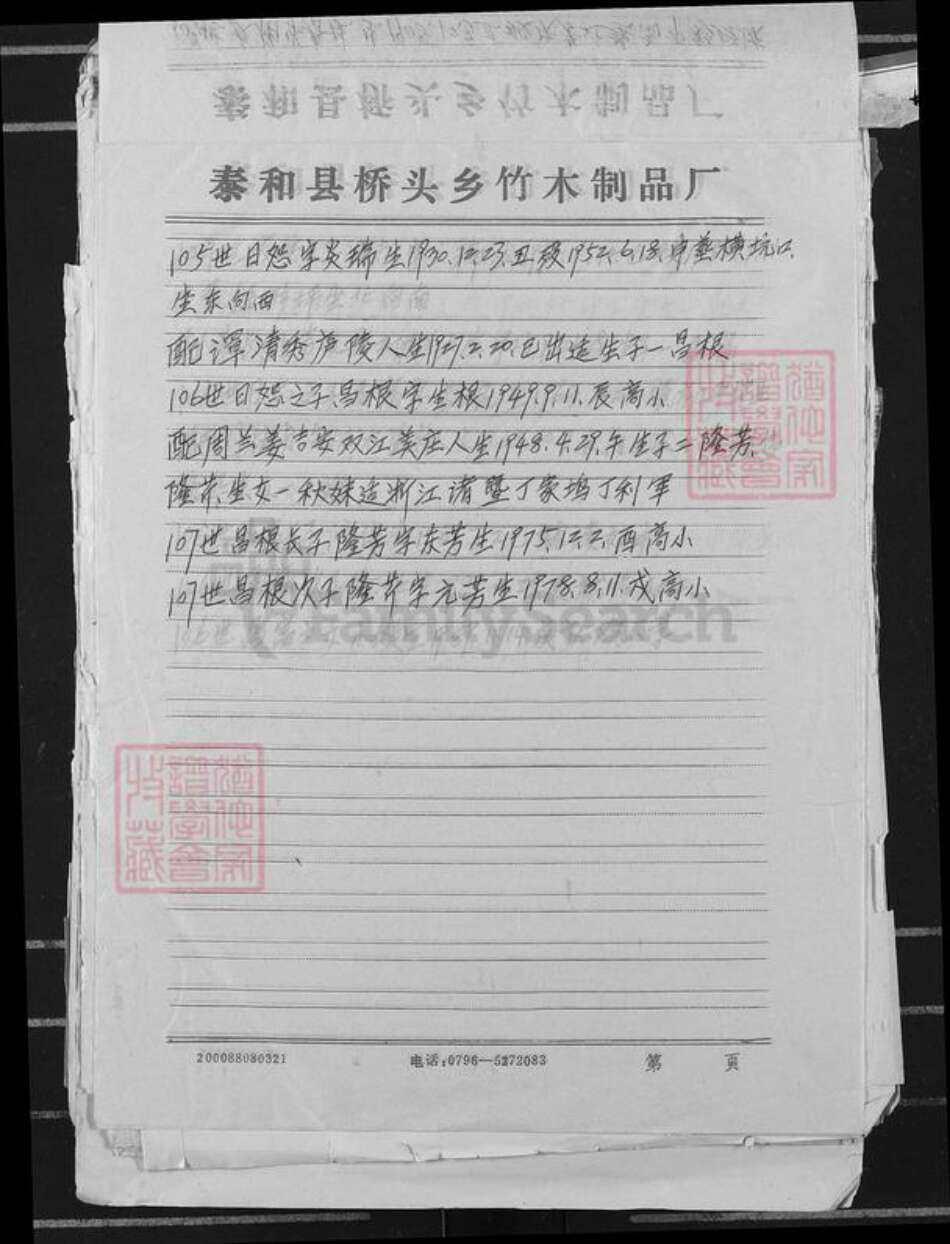 泰和县桥头乡竹木制品厂
105世日恕字炎瑞生1930.12.23.丑殁1952.6.18.申葬横坑口
坐东向西
配谭清秀庐陵人生1927.2.20.巳出适生子一昌根
106世日恕之子昌根字生根1949.9.11.辰高小
配周兰姜吉安双江英庄人生1948.4.29.午生子二隆芳.
隆芹.生女一秋妹适浙江诸暨丁家坞丁利军
107世昌根长子隆芳字东芳生1975.12.2.酉高小
107世昌根次子隆芹字元芳生1978.8.11.戌高小
FamilySearch
譜學會
收藏
200088080321 电话:0796—5272083 第 页